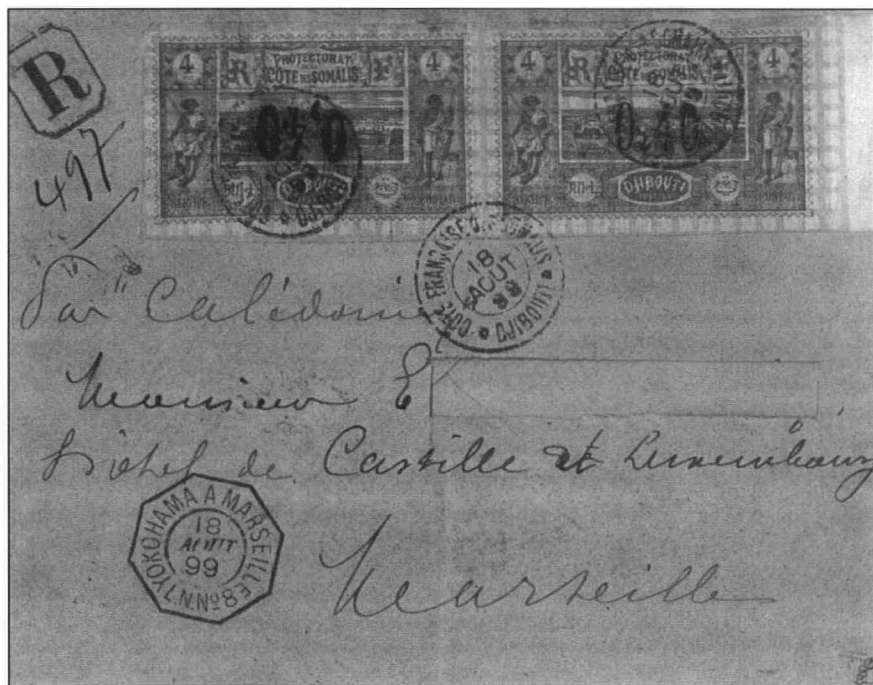 R
497
4 PROTECTORAT 4
R CÔTE DES SOMALIS F
0,40
DJIBOUTI
4 PROTECTORAT 4
R CÔTE DES SOMALIS F
0,40
DJIBOUTI
CÔTE FRANÇAISE DES SOMALIS * DJIBOUTI *
18
AOUT
99
Par Calédonien
Monsieur E
Hôtel de Castille et Luxembourg
YOKOHAMA A MARSEILLE
18
AOUT
99
L.N.Nº8
Marseille